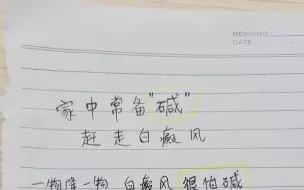 MEMO NO.
DATE
家中常备"碱"
赶走白癜风
一物降一物 白癜风 很怕碱